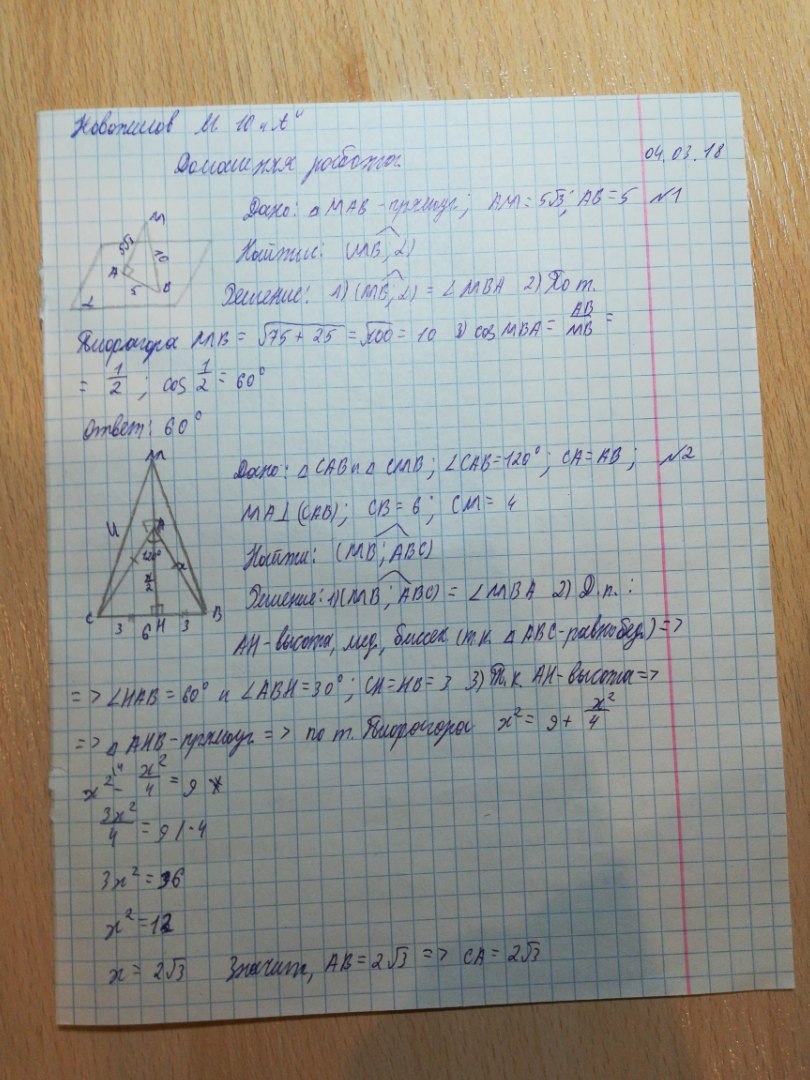 Новожилов М 10 "А"
Домашняя работа. 04.03.18
Дано: △ MAB - прямоуг; AM = 5√3; AB = 5 №1
Найти: (MB; α)
Решение: 1) (MB; α) = ∠MBA 2) По т.
Пифагора MB = √75 + 25 = √100 = 10 3) cos MBA = AB/MB =
= 1/2 ; cos 1/2 = 60°
Ответ: 60°
M
5√3
10
A
5
B
α
Дано: △ CAB и △ CMB; ∠CAB = 120°; CA = AB; №2
MA ⊥ (CAB); CB = 6; CM = 4
Найти: (MB; ABC)
Решение: 1) (MB; ABC) = ∠MBA 2) Д.п.:
AH - высота, мед, биссек (т.к. △ ABC - равнобед.) =>
=> ∠HAB = 60° и ∠ABH = 30°; CH = HB = 3 3) Т.к. AH - высота =>
=> △ AHB - прямоуг => по т. Пифагора x² = 9 + x²/4
M
4
A
120°
x
x/2
C
3
6
H
3
B
x² - x²/4 = 9
3x²/4 = 9 | · 4
3x² = 36
x² = 12
x = 2√3 Значит, AB = 2√3 => CA = 2√3